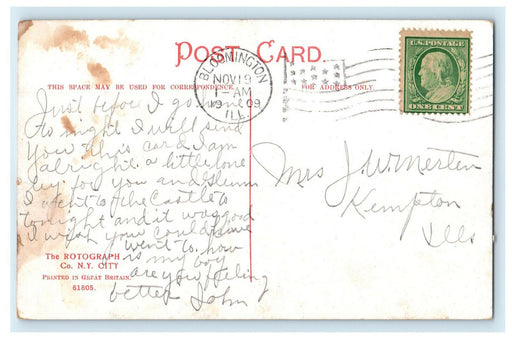 POST CARD.
THIS SPACE MAY BE USED FOR CORRESPONDENCE
FOR ADDRESS ONLY.
BLOOMINGTON
NOV 19
1-AM
1909
ILL.
U.S. POSTAGE
ONE CENT
Just before I go
to night I will send
you this card I am
alright. a little lone
ley for you and
I went to the Castle to
night and it was good
I wish you could have
went to. how
is my boy
are you feeling
better John
Mrs J. W. Merten
Kempton
Ills
The ROTOGRAPH
Co. N.Y. CITY
PRINTED IN GREAT BRITAIN.
61805.